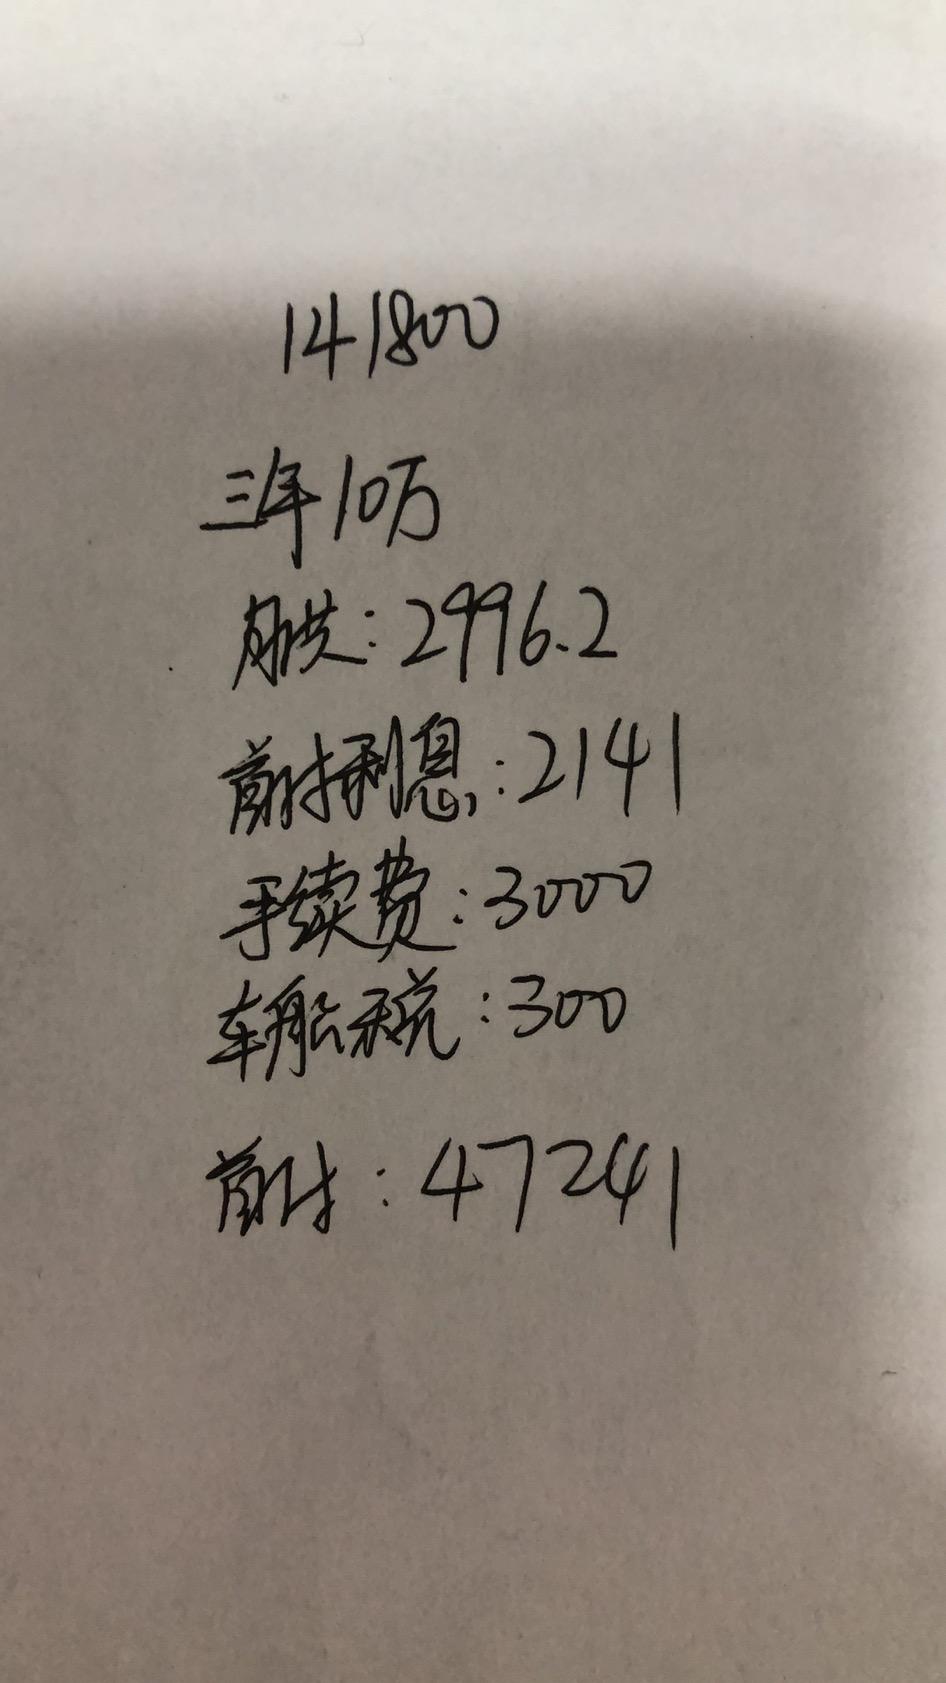 141800
三年10万
月供:2996.2
前付利息:2141
手续费:3000
车船税:300
前付:47241